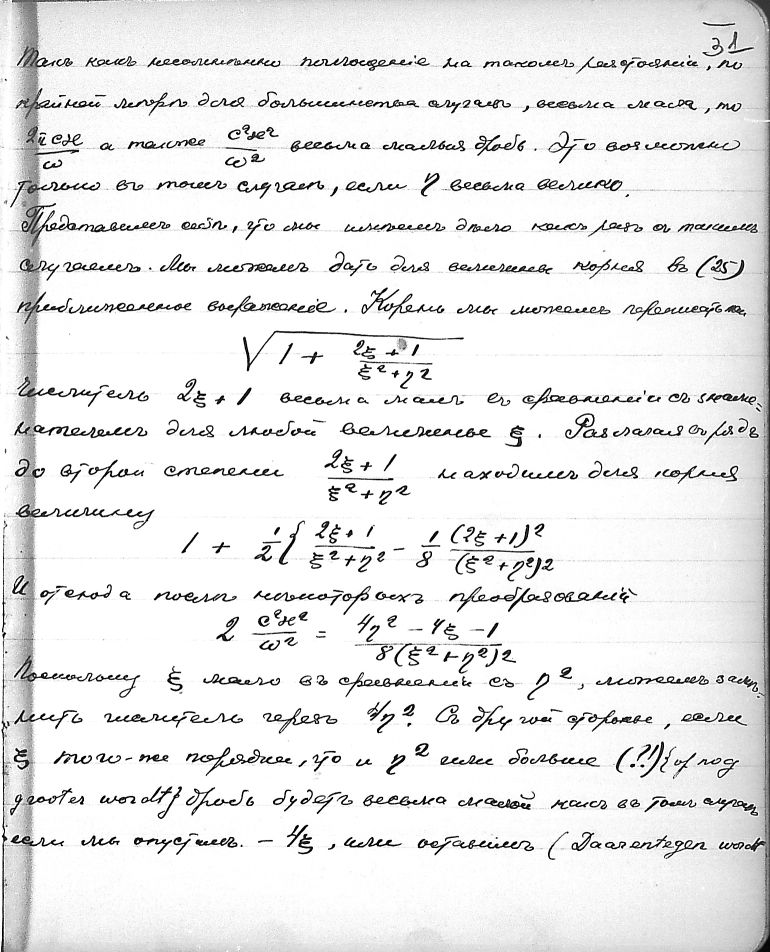 31
Такъ какъ несомнѣнно поглощеніе на такомъ разстояніи, по
крайней мѣрѣ для большинства случаевъ, весьма мала, то
2πcϰ/ω а также c²ϰ²/ω² весьма малыя дробь. Это возможно
только въ томъ случаѣ, если η весьма велико.
Представимъ себѣ, что мы имѣемъ дѣло какъ разъ съ такимъ
случаемъ. Мы можемъ дать для величины корня въ (25)
приближенное выраженіе. Корень мы можемъ переписать
√1 + (2ξ + 1)/(ξ² + η²)
Числитель 2ξ + 1 весьма малъ въ сравненіи съ знаме=
нателемъ для любой величины ξ. Разлагая въ рядъ
до второй степени (2ξ + 1)/(ξ² + η²) находимъ для корня
величину
1 + 1/2 { (2ξ + 1)/(ξ² + η²) − 1/8 (2ξ + 1)²/(ξ² + η²)2
И отсюда послѣ нѣкоторыхъ преобразованій
2 c²ϰ²/ω² = (4η² − 4ξ − 1)/8(ξ² + η²)2
Поскольку ξ мало въ сравненіи съ η², можемъ замѣ-
нить числитель черезъ 4η². Съ другой стороны, если
ξ того-же порядка, что и η² или больше (?!) {of nog
grooter wordt} дробь будетъ весьма малой какъ въ томъ случаѣ
если мы опустимъ − 4ξ, или оставимъ (Daarentegen wordt